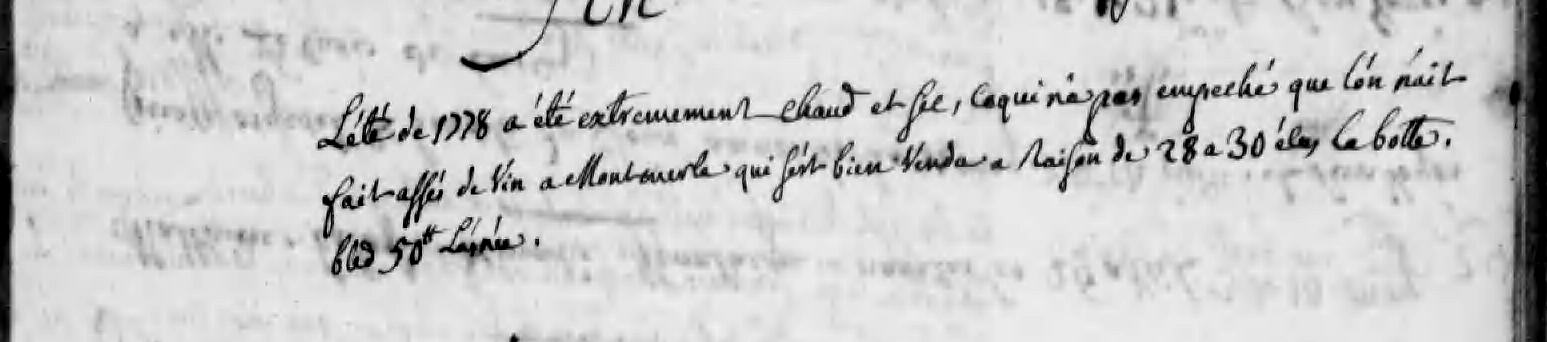 fin
L'été de 1778 a été extremement chaud et sec, ce qui n'a pas empeché que l'on n'ait
fait assés de vin a Montmerle qui s'est bien vendu a raison de 28 a 30 la botte.
bled 50tt L'anée.